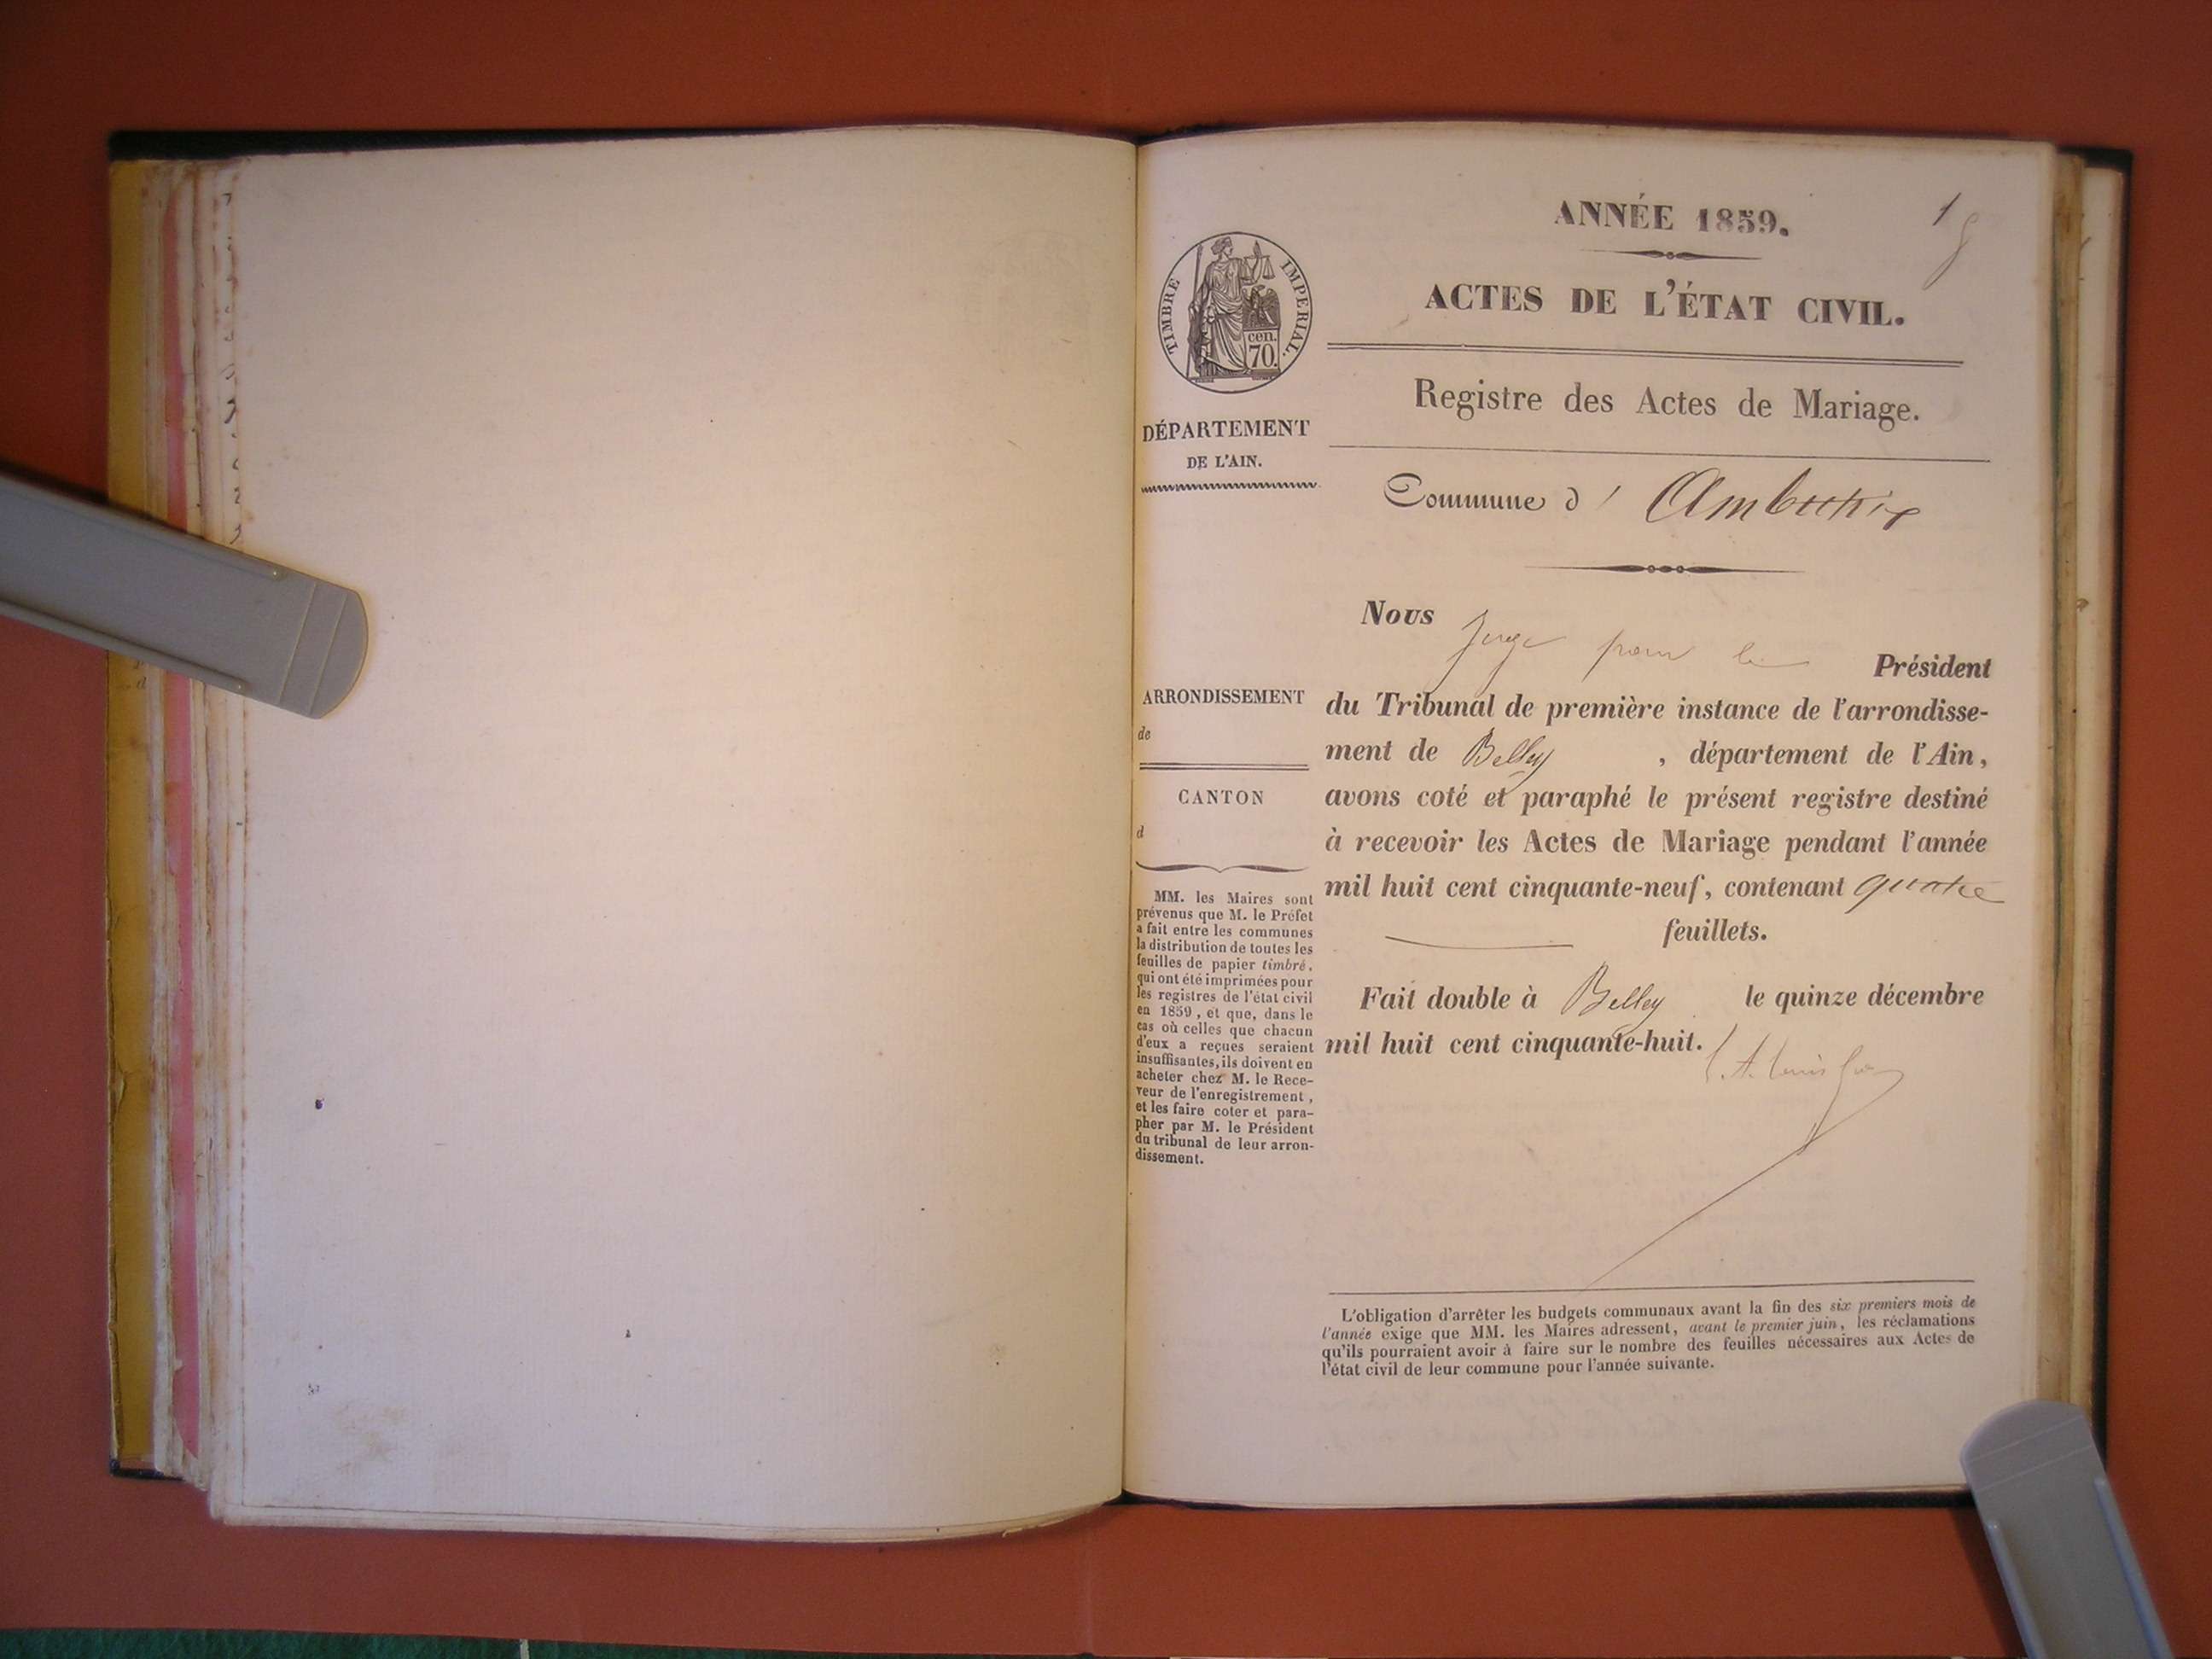 ANNÉE 1859.
1
ACTES DE L'ÉTAT CIVIL.
TIMBRE IMPERIAL.
cen.
70.
Registre des Actes de Mariage.
DÉPARTEMENT
DE L'AIN.
Commune d'
Nous Juge pour le Président
ARRONDISSEMENT
de
du Tribunal de première instance de l'arrondisse-
ment de Belley , département de l'Ain,
CANTON
d
avons coté et paraphé le présent registre destiné
à recevoir les Actes de Mariage pendant l'année
mil huit cent cinquante-neuf, contenant quatre
feuillets.
Fait double à Belley le quinze décembre
mil huit cent cinquante-huit.
MM. les Maires sont
prévenus que M. le Préfet
a fait entre les communes
la distribution de toutes les
feuilles de papier timbré,
qui ont été imprimées pour
les registres de l'état civil
en 1859, et que, dans le
cas où celles que chacun
d'eux a reçues seraient
insuffisantes, ils doivent en
acheter chez M. le Rece-
veur de l'enregistrement,
et les faire coter et para-
pher par M. le Président
du tribunal de leur arron-
dissement.
L'obligation d'arrêter les budgets communaux avant la fin des six premiers mois de
l'année exige que MM. les Maires adressent, avant le premier juin, les réclamations
qu'ils pourraient avoir à faire sur le nombre des feuilles nécessaires aux Actes de
l'état civil de leur commune pour l'année suivante.